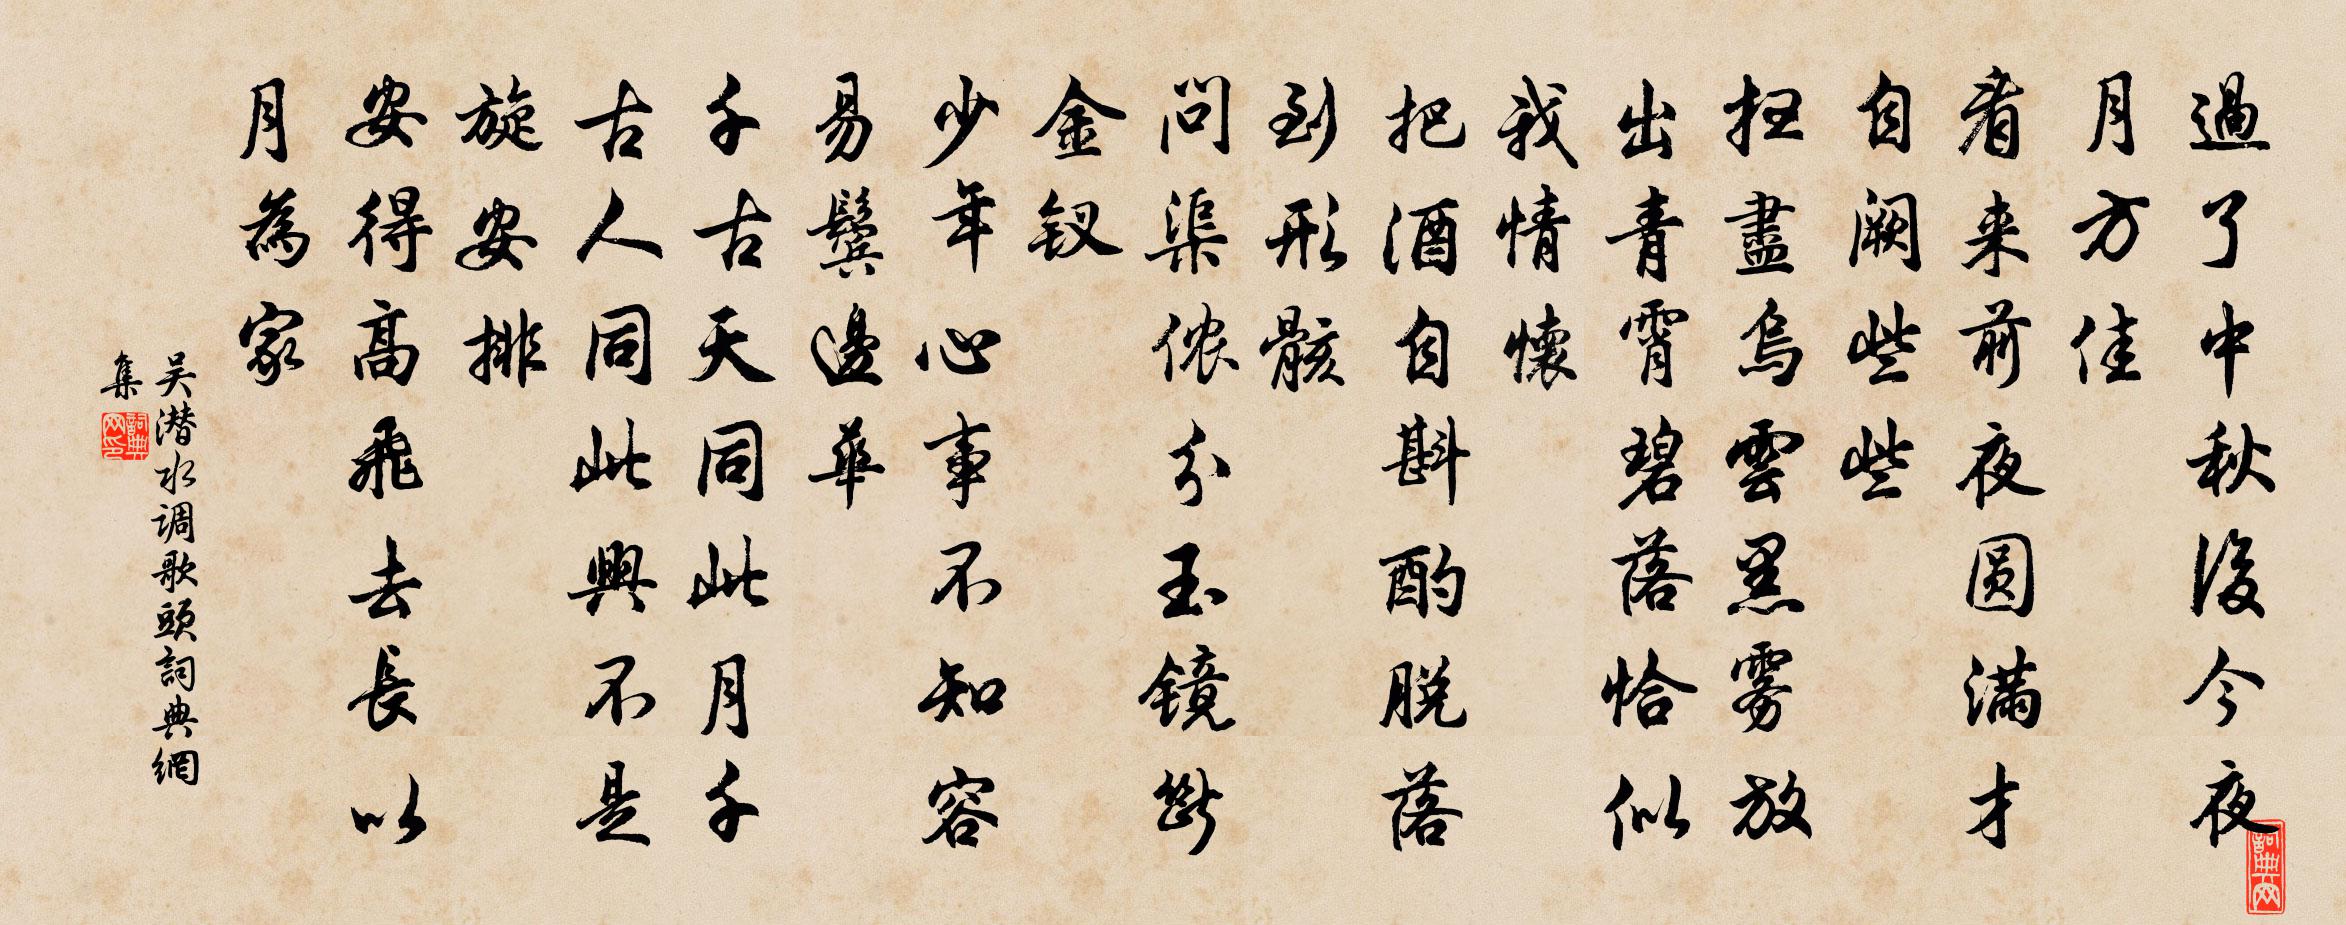 過了中秋後今夜
月方佳
看来前夜圆满才
自阙些些
扫盡烏雲黑雾放
出青霄碧落恰似
我情懷
把酒自斟酌脱落
到形骸
問渠侬分玉镜斷
金钗
少年心事不知容
易鬓邊華
千古天同此月千
古人同此興不是
旋安排
安得高飛去長以
月為家
吴潜水调歌頭詞典網
集
詞典网印
詞典网